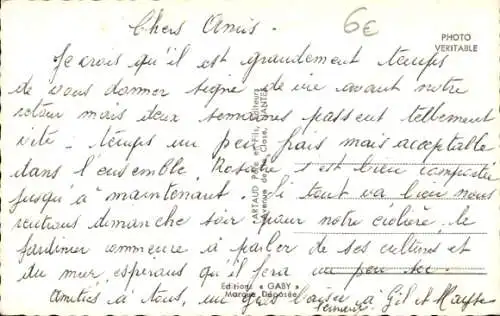 Chers Amis.
6€
PHOTO
VERITABLE
Je crois qu'il est grandement temps
de vous donner signe de vie avant notre
retour mais deux semaines passent tellement
vite. temps un peu frais mais acceptable
dans l'ensemble. s'est bien comportée
jusqu'à "maintenant". Si tout va bien nous
rentrons dimanche soir pour notre le
jardinier commence à parler de ses cultures et
du mur, esperons qu'il fera un peu sec.
Amitiés à tous, un gros baiser à Gil et
ARTAUD Père et Fils, Editeurs
Avenue de la Close, NANTES
Editions « GABY »
Marque Déposée